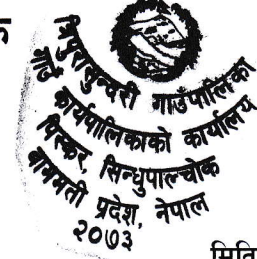 त्रिपुरासुन्दरी गाउँपालिका
गाउँ कार्यपालिकाको कार्यालय
पिस्कर, सिन्धुपाल्चोक
बागमती प्रदेश, नेपाल
२०७३
मिति